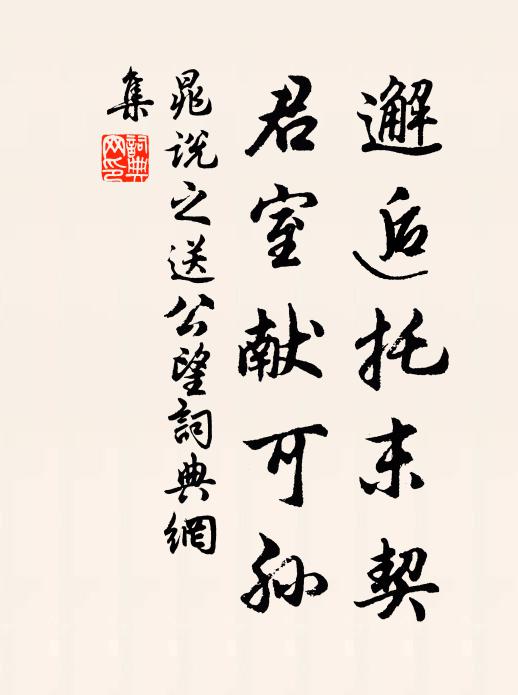 邂逅托末契
君室献可孙
晁说之送公望詞典網
集
詞典网印